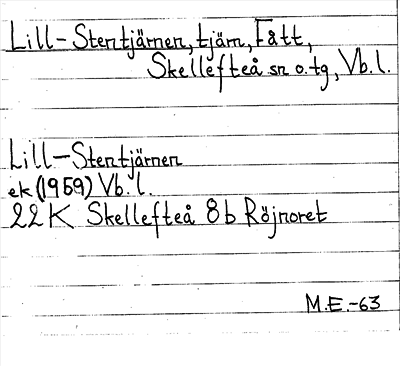 Lill-Stentjärnen, tjärn, Fått,
Skellefteå sn o. tg, Vb. l.
Lill-Stentjärnen
ek (1959) Vb. l.
22 K Skellefteå 8 b Röjnoret
M.E.-63